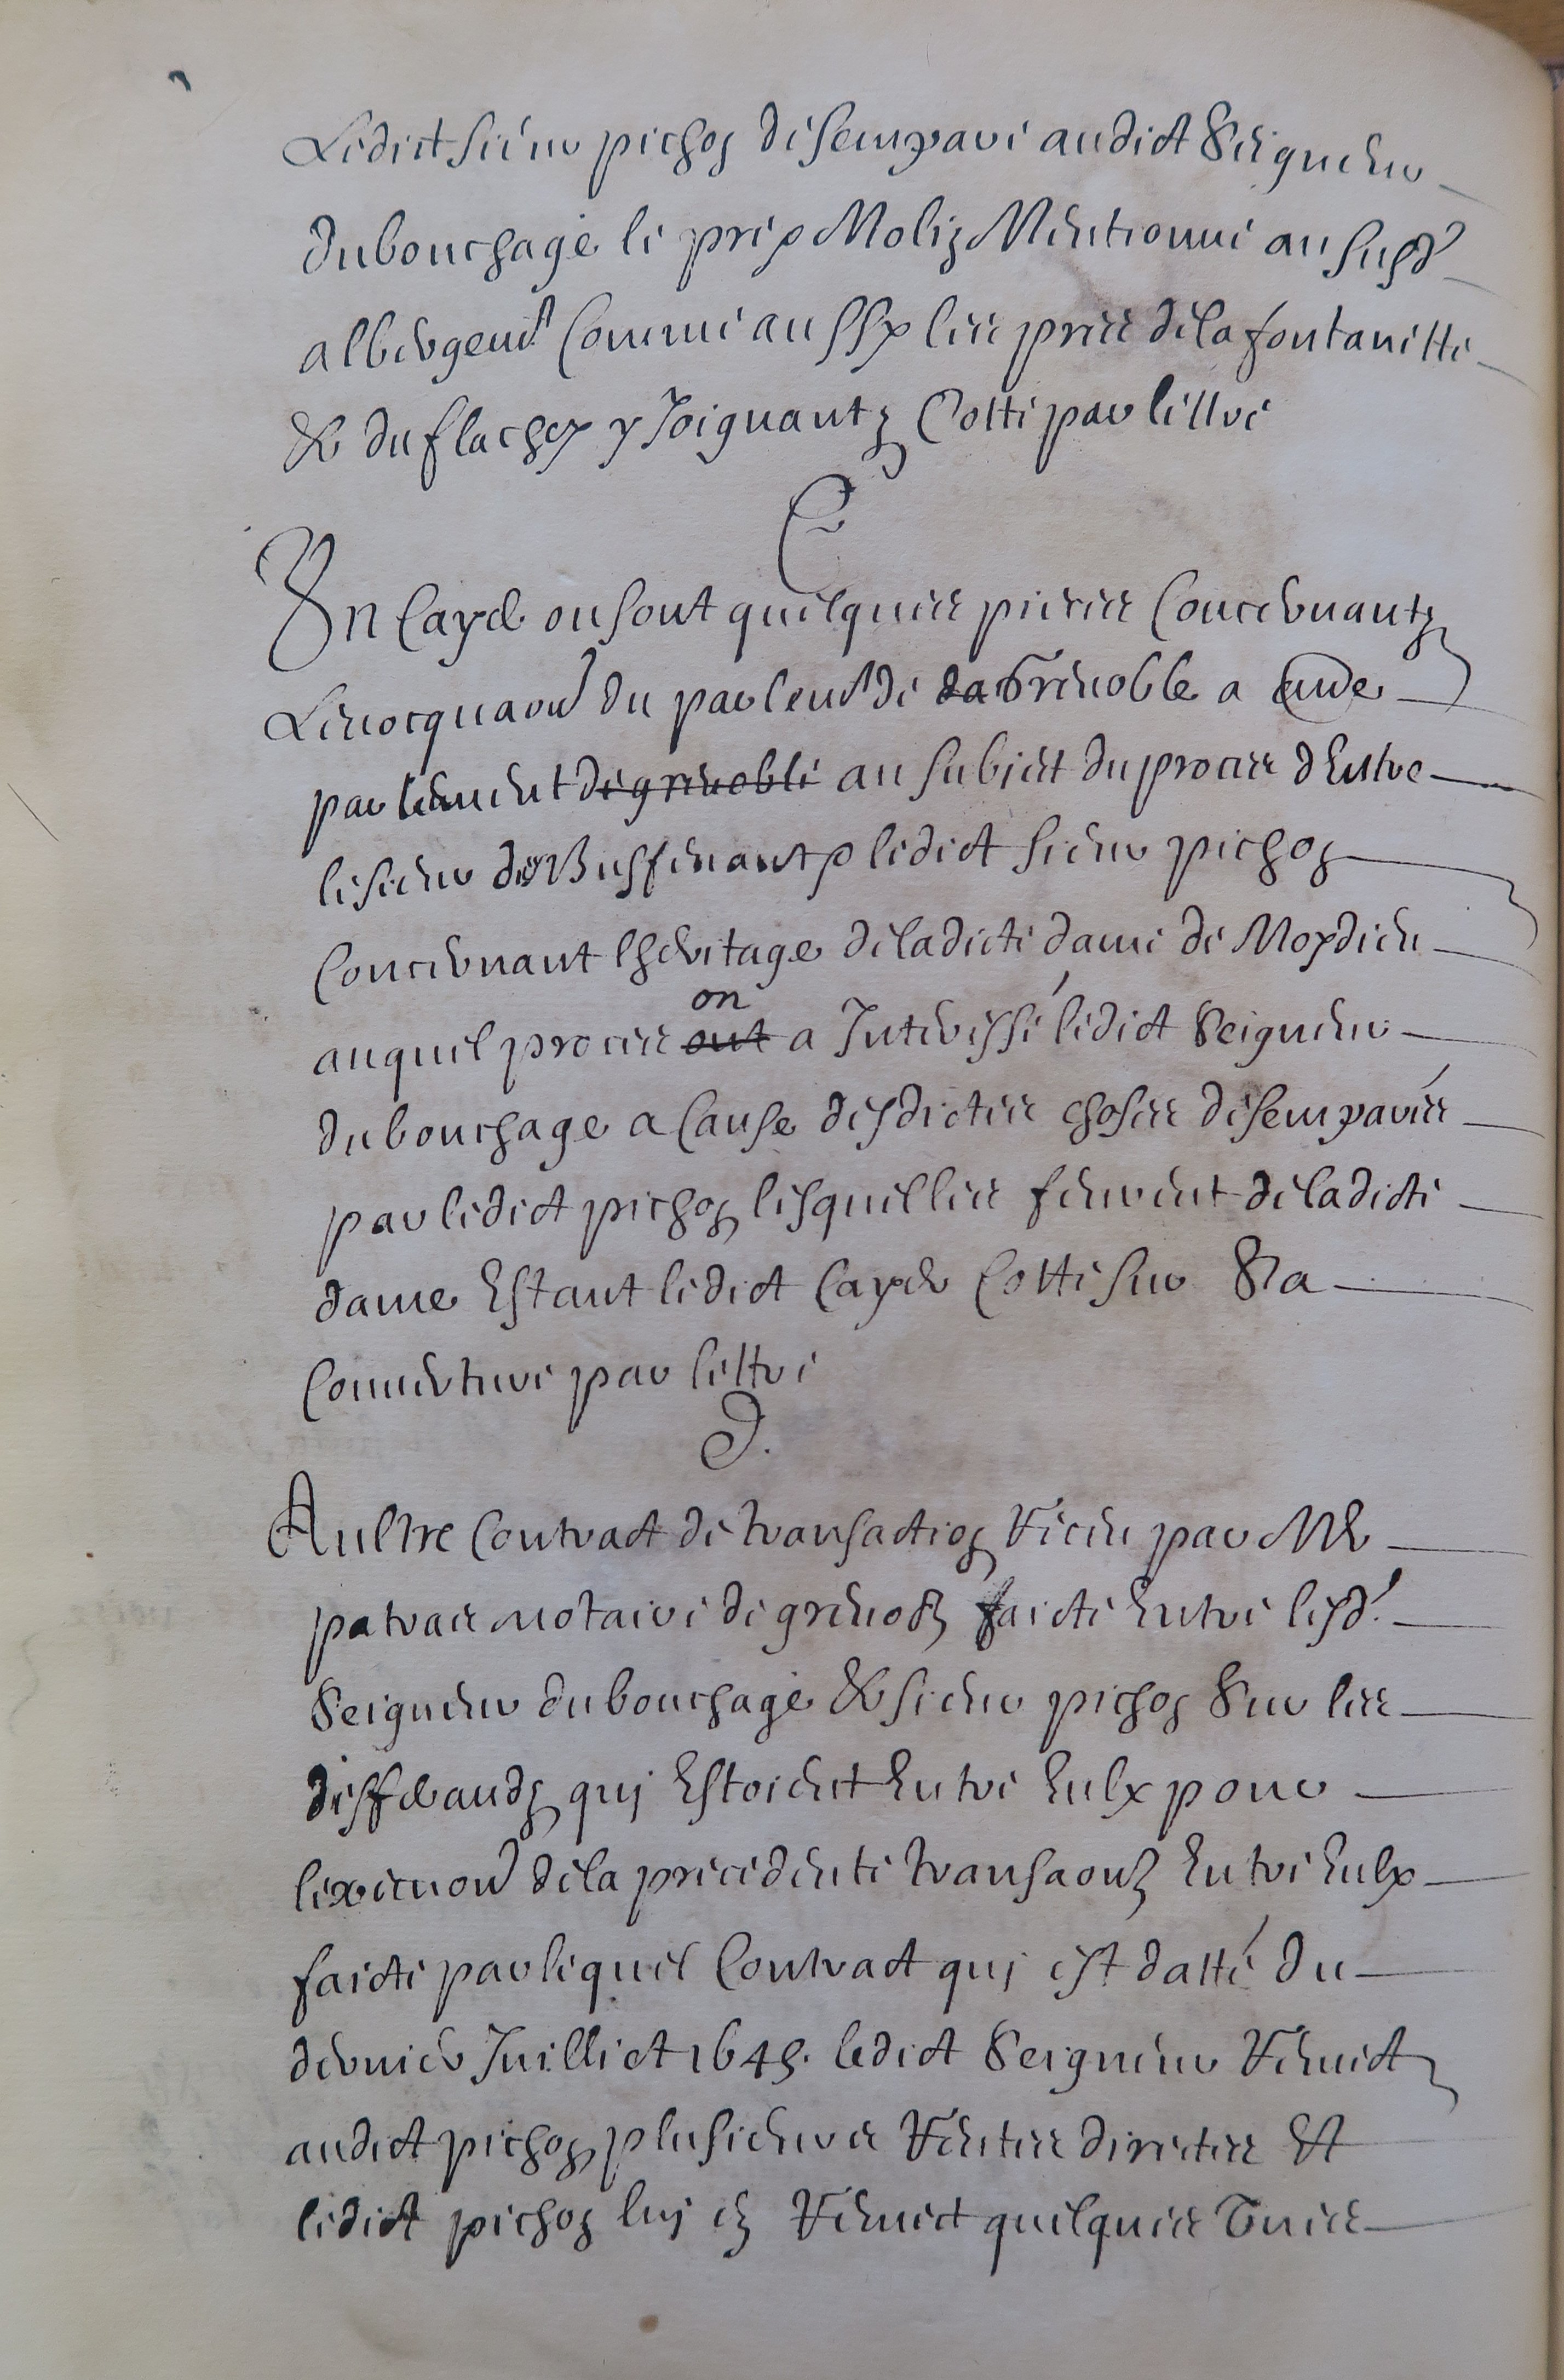 Ledict sieur pichon desempare audict Seigneur
du bouchage le pré Molin Mentionné au susd.
albergemt Comme aussy les prés de la fontanette
& du flachey y Joignantz Cotté par lettre
C
Un Cayer ou sont quelques pieces Concernantz
Levocquaon du parlemt de Grenoble a Autre
parlement de grenoble au subject du proces dEntre
le sieur de Buffevant & ledict sieur pichon
Concernant lheritage de ladicte dame de Moydieu
auquel proces ont on a Interessé ledict Seigneur
du bouchage a Cause desdictes choses desemparées
par ledict pichon lesquelles feurent de ladicte
dame Estant ledict Cayer Cotté sur Sa
Couverture par lettre
D.
Aultre Contract de transaction Receu par Me
patras notaire de grenoble faicte Entre lesd.
Seigneur du bouchage & sieur pichon Sur les
differandz qui Estoient Entre Eulx pour
lexecuon de la precedente transaon Entre Eulx
faicte par lequel Contract qui est datté du
dernier Juilliet 1645. ledict Seigneur Remict
audict pichon plusieurs Rentes directes Et
ledict pichon luy en Remict quelques Unes